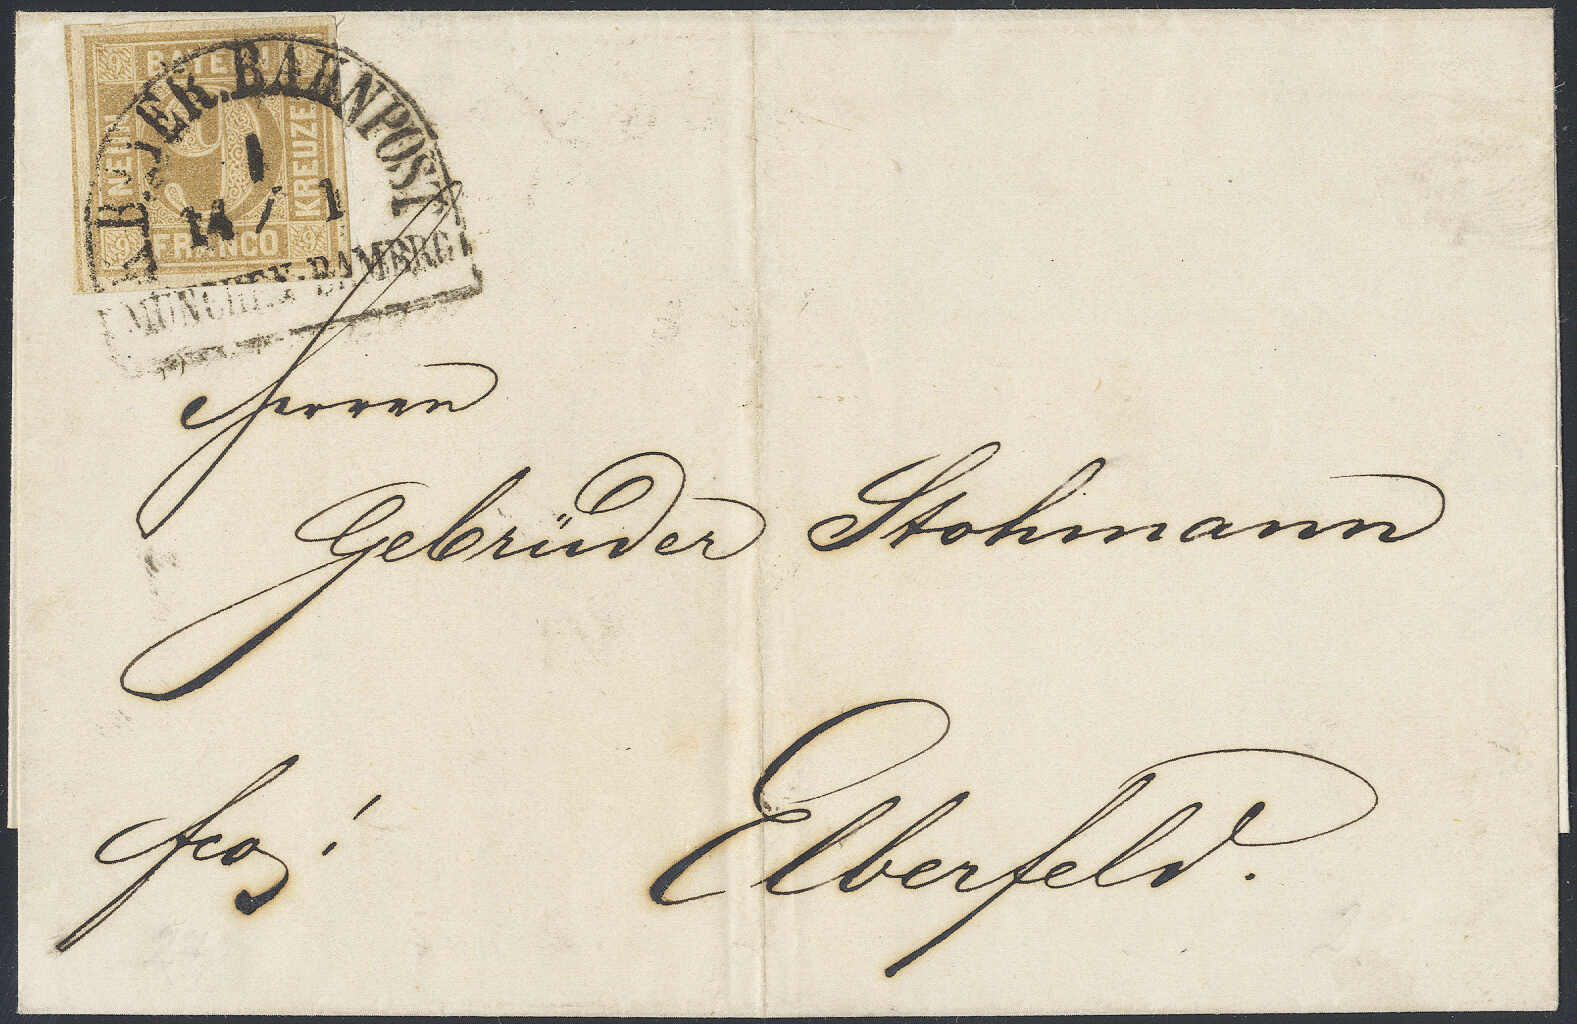 BAYERN
NEUN
KREUZER
FRANCO
9 9 9 9
K. BAYER. BAHNPOST
I
14 / 1
MÜNCHEN-BAMBRG
Herren
Gebrüder Stohmann
Elberfeld.
fco!